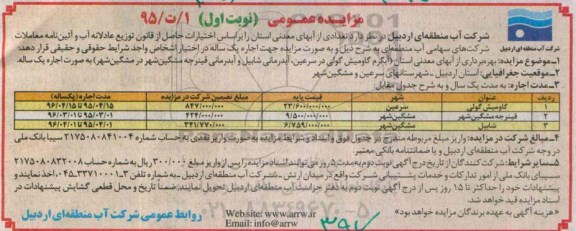 مزایده عمومی (نوبت اول) ۱/ت/۹۵
شرکت آب منطقه‌ای اردبیل
شرکت آب منطقه‌ای اردبیل در نظر دارد تعدادی از آبهای معدنی استان را براساس اختیارات حاصل از قانون توزیع عادلانه آب و آئین‌نامه معاملات
شرکت‌های سهامی آب منطقه‌ای به شرح ذیل و به صورت مزایده جهت اجاره یک ساله در اختیار اشخاص واجد شرایط حقوقی و حقیقی قرار دهد:
۱-موضوع مزایده: بهره‌برداری از آبهای معدنی استان (آبگرم گاومیش گولی در سرعین، آبدرمانی شابیل و آبدرمانی قینرجه مشگین‌شهر در مشگین‌شهر) به صورت اجاره یک ساله.
۲-موقعیت جغرافیایی: استان اردبیل -شهرستانهای سرعین و مشگین‌شهر
۳-مدت اجاره: به مدت یک سال و به شرح جدول مقابل
ردیف عنوان شهر قیمت پایه مبلغ تضمین شرکت در مزایده مدت اجاره (یکساله)
۱ گاومیش گولی سرعین ۲۳/۶۰۰/۰۰۰/۰۰۰ ۸۴۷/۰۰۰/۰۰۰ ۹۵/۰۴/۱۵ تا ۹۶/۰۴/۱۵
۲ قینرجه مشگین‌شهر مشگین‌شهر ۹/۵۰۰/۰۰۰/۰۰۰ ۴۲۴/۰۰۰/۰۰۰ ۹۵/۰۳/۰۱ تا ۹۶/۰۳/۰۱
۳ شابیل مشگین‌شهر ۶/۷۵۹/۰۰۰/۰۰۰ ۳۴۱/۷۷۰/۰۰۰ ۹۵/۰۳/۰۱ تا ۹۶/۰۳/۰۱
۴-مبالغ شرکت در مزایده: واریز مبلغ مربوطه مندرج در جدول فوق و ابتدای شرایط مزایده به صورت واریز نقدی به حساب شماره ۲۱۷۵۰۸۰۸۴۱۰۰۴ سیبا بانک ملی
در وجه شرکت آب منطقه‌ای اردبیل و یا ضمانتنامه بانکی معتبر
۵-سایر شرایط: شرکت کنندگان از تاریخ درج آگهی نوبت دوم به مدت ۵ روز می‌توانند اسناد مزایده را پس از واریز مبلغ ۳۰۰/۰۰۰ ریال به شماره حساب ۲۱۷۵۰۸۰۸۳۲۰۰۸
سیبای بانک ملی از امور تدارکات و خدمات پشتیبانی شرکت واقع در میدان ارتش -شرکت آب منطقه‌ای اردبیل -به شماره تلفن ۳-۰۴۵۳۳۷۱۰۰۰۱ اخذ نمایند و
پیشنهادات خود را حداکثر تا ۱۵ روز پس از درج آگهی نوبت دوم به دفتر حراست آب منطقه‌ای اردبیل تحویل نمایند. ضمنا تاریخ و محل قطعی گشایش پیشنهادات در
اسناد مزایده قید خواهد شد.
«هزینه آگهی به عهده برندگان مزایده خواهد بود»
Website: www.arrw.ir
Email: info@arrw
روابط عمومی شرکت آب منطقه‌ای اردبیل